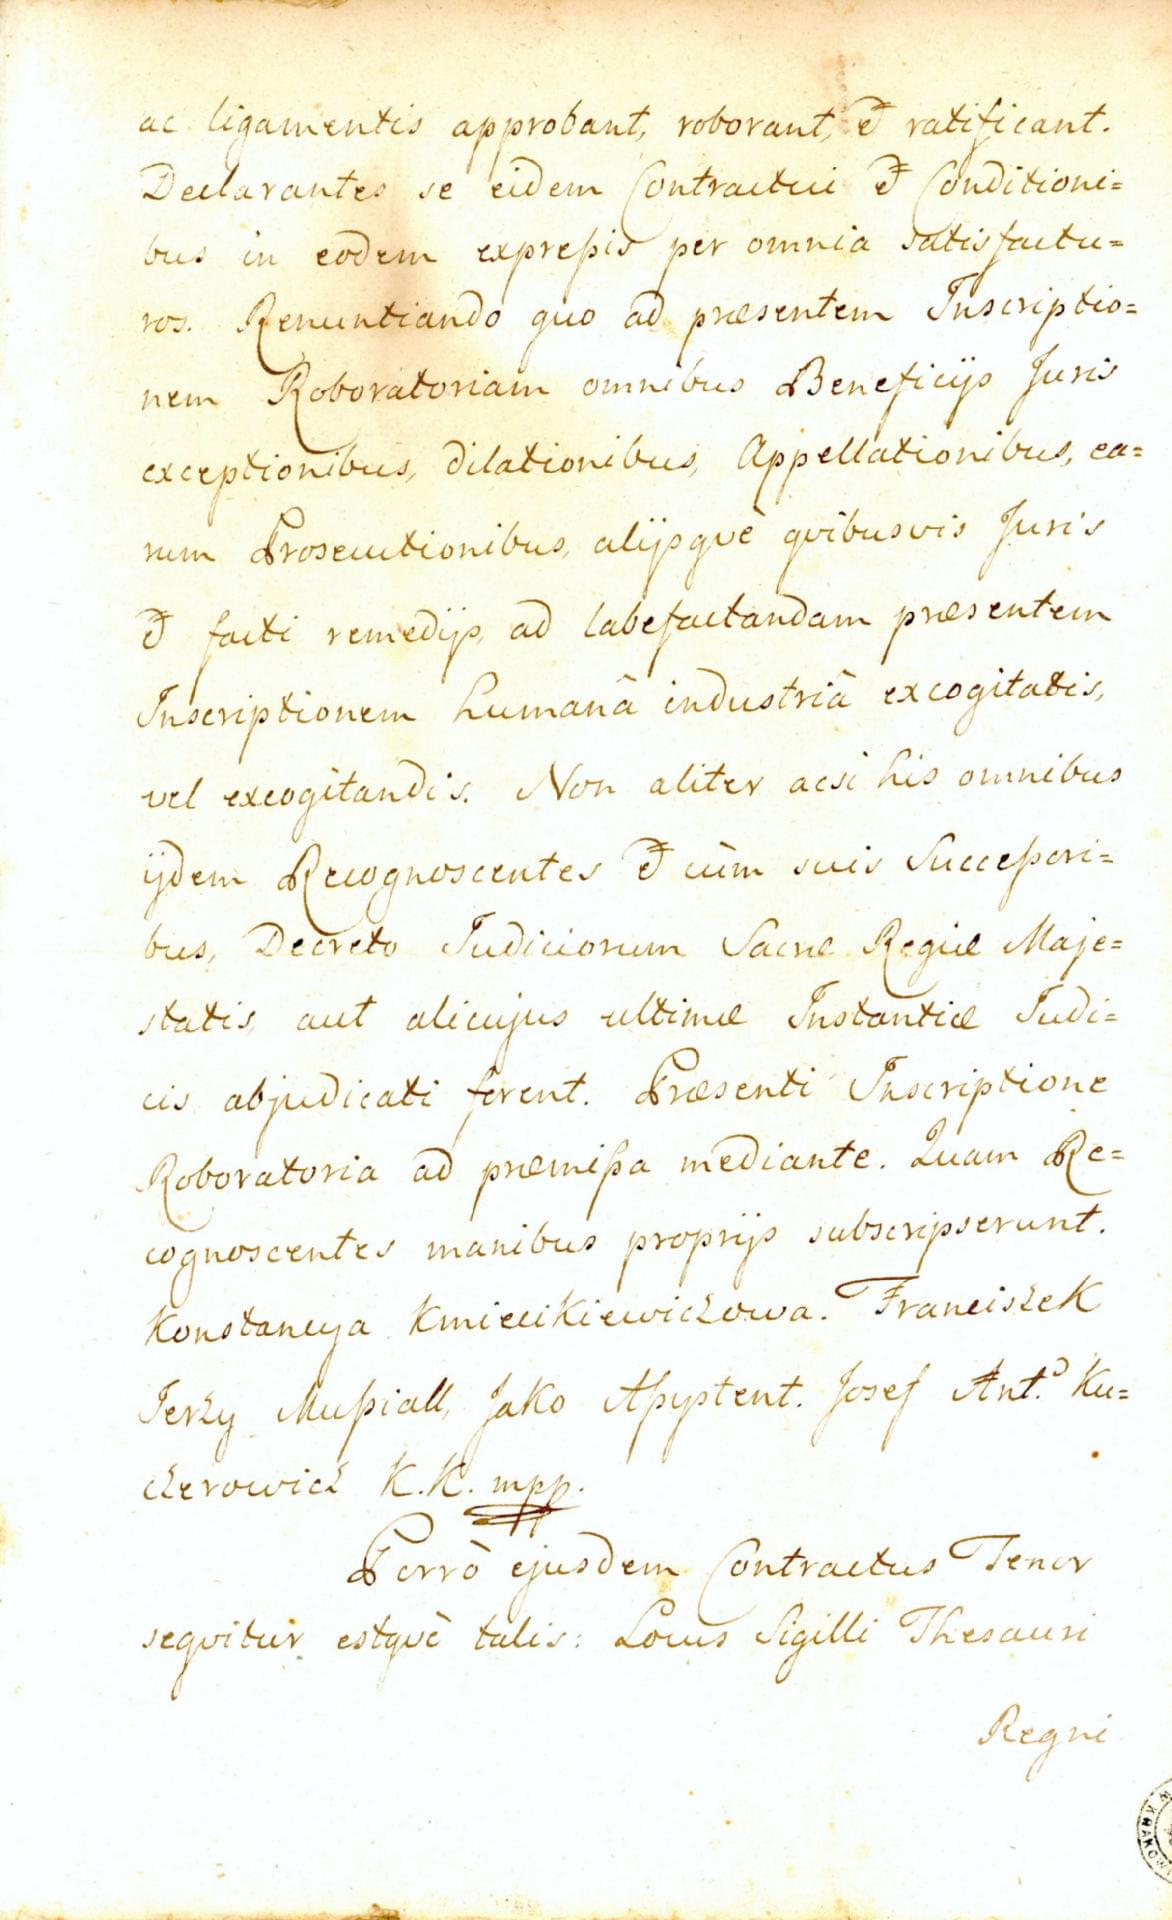 ac ligamentis approbant, roborant, & ratificant.
Declarantes se eidem Contractui & Conditioni=
bus in eodem expreßis per omnia satisfactu=
ros. Renuntiando quo ad præsentem Inscriptio=
nem Roboratoriam omnibus Beneficijs Juris
exceptionibus, dilationibus, Appellationibus, ea=
rum Prosecutionibus, alijsqvè qvibusvis Juris
& facti remedijs, ad labefactandam præsentem
Inscriptionem humanâ industriâ excogitatis,
vel excogitandis. Non aliter acsi his omnibus
ijdem Recognoscentes & cùm suis Succeßori=
bus, Decreto Judiciorum Sacræ Regiæ Maje=
statis, aut alicujus ultimæ Instantiæ Judi=
cis abjudicati forent. Præsenti Inscriptione
Roboratoria ad præmißa mediante. Quam Re=
cognoscentes manibus proprijs subscripserunt.
Konstancya Kmiecikiewiczowa. Franciszek
Jerzy Mußiall, Jako Aßystent. Josef Ant. Ku=
czerowicz K.K. mpp.
Porrò ejusdem Contractus Tenor
seqvitur estqvè talis: Locus Sigilli Thesauri
Regni